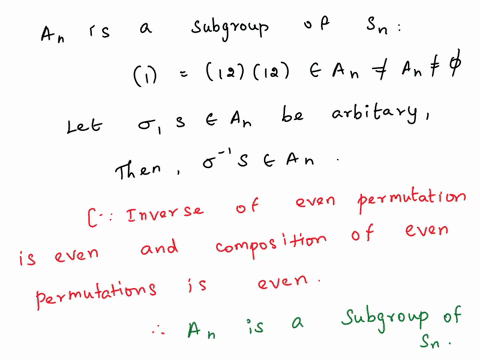 An is a subgroup of Sn:
(1) = (12)(12) ∈ An ≠ An ≠ ϕ
Let σ, s ∈ An be arbitary,
Then, σ⁻¹s ∈ An.
[∵ Inverse of even permutation
is even and composition of even
permutations is even.
∴ An is a subgroup of
Sn.